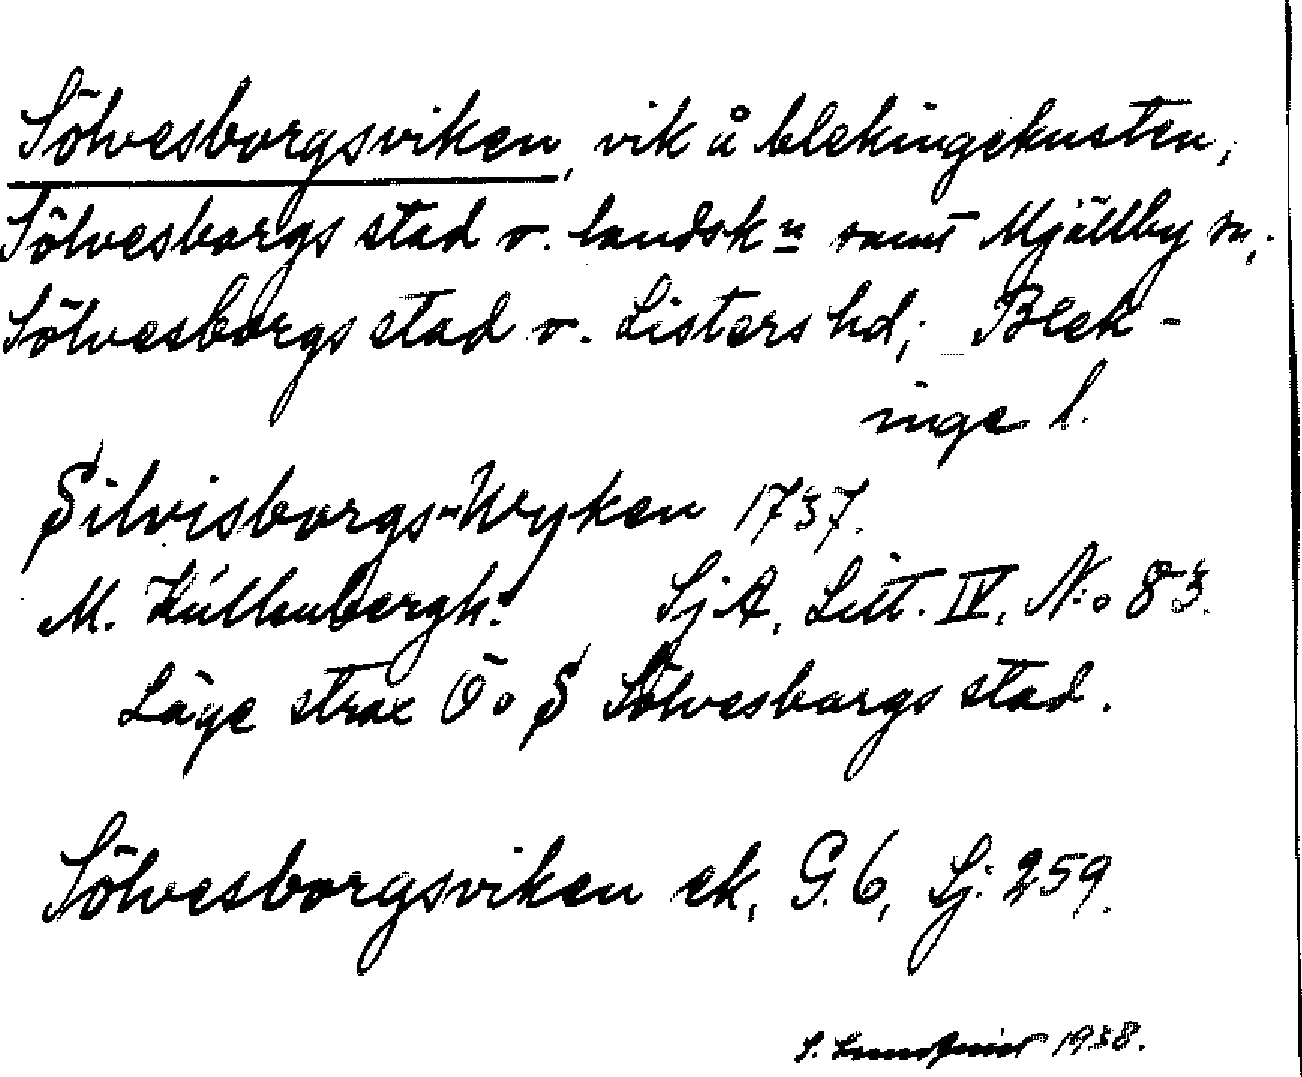 Sölvesborgsviken, vik å blekingekusten,
Sölvesborgs stad o. landsk:n samt Mjällby sn,
Sölvesborgs stad o. Listers hd; Blek-
inge l.
Silvisborgs-Wyken 1737.
M. Küllenbergh. SjA, Litt. IV, No 83.
Läge strax Ö o S Sölvesborgs stad.
Sölvesborgsviken ek, G. 6, Sj. 259.
S. 1938.